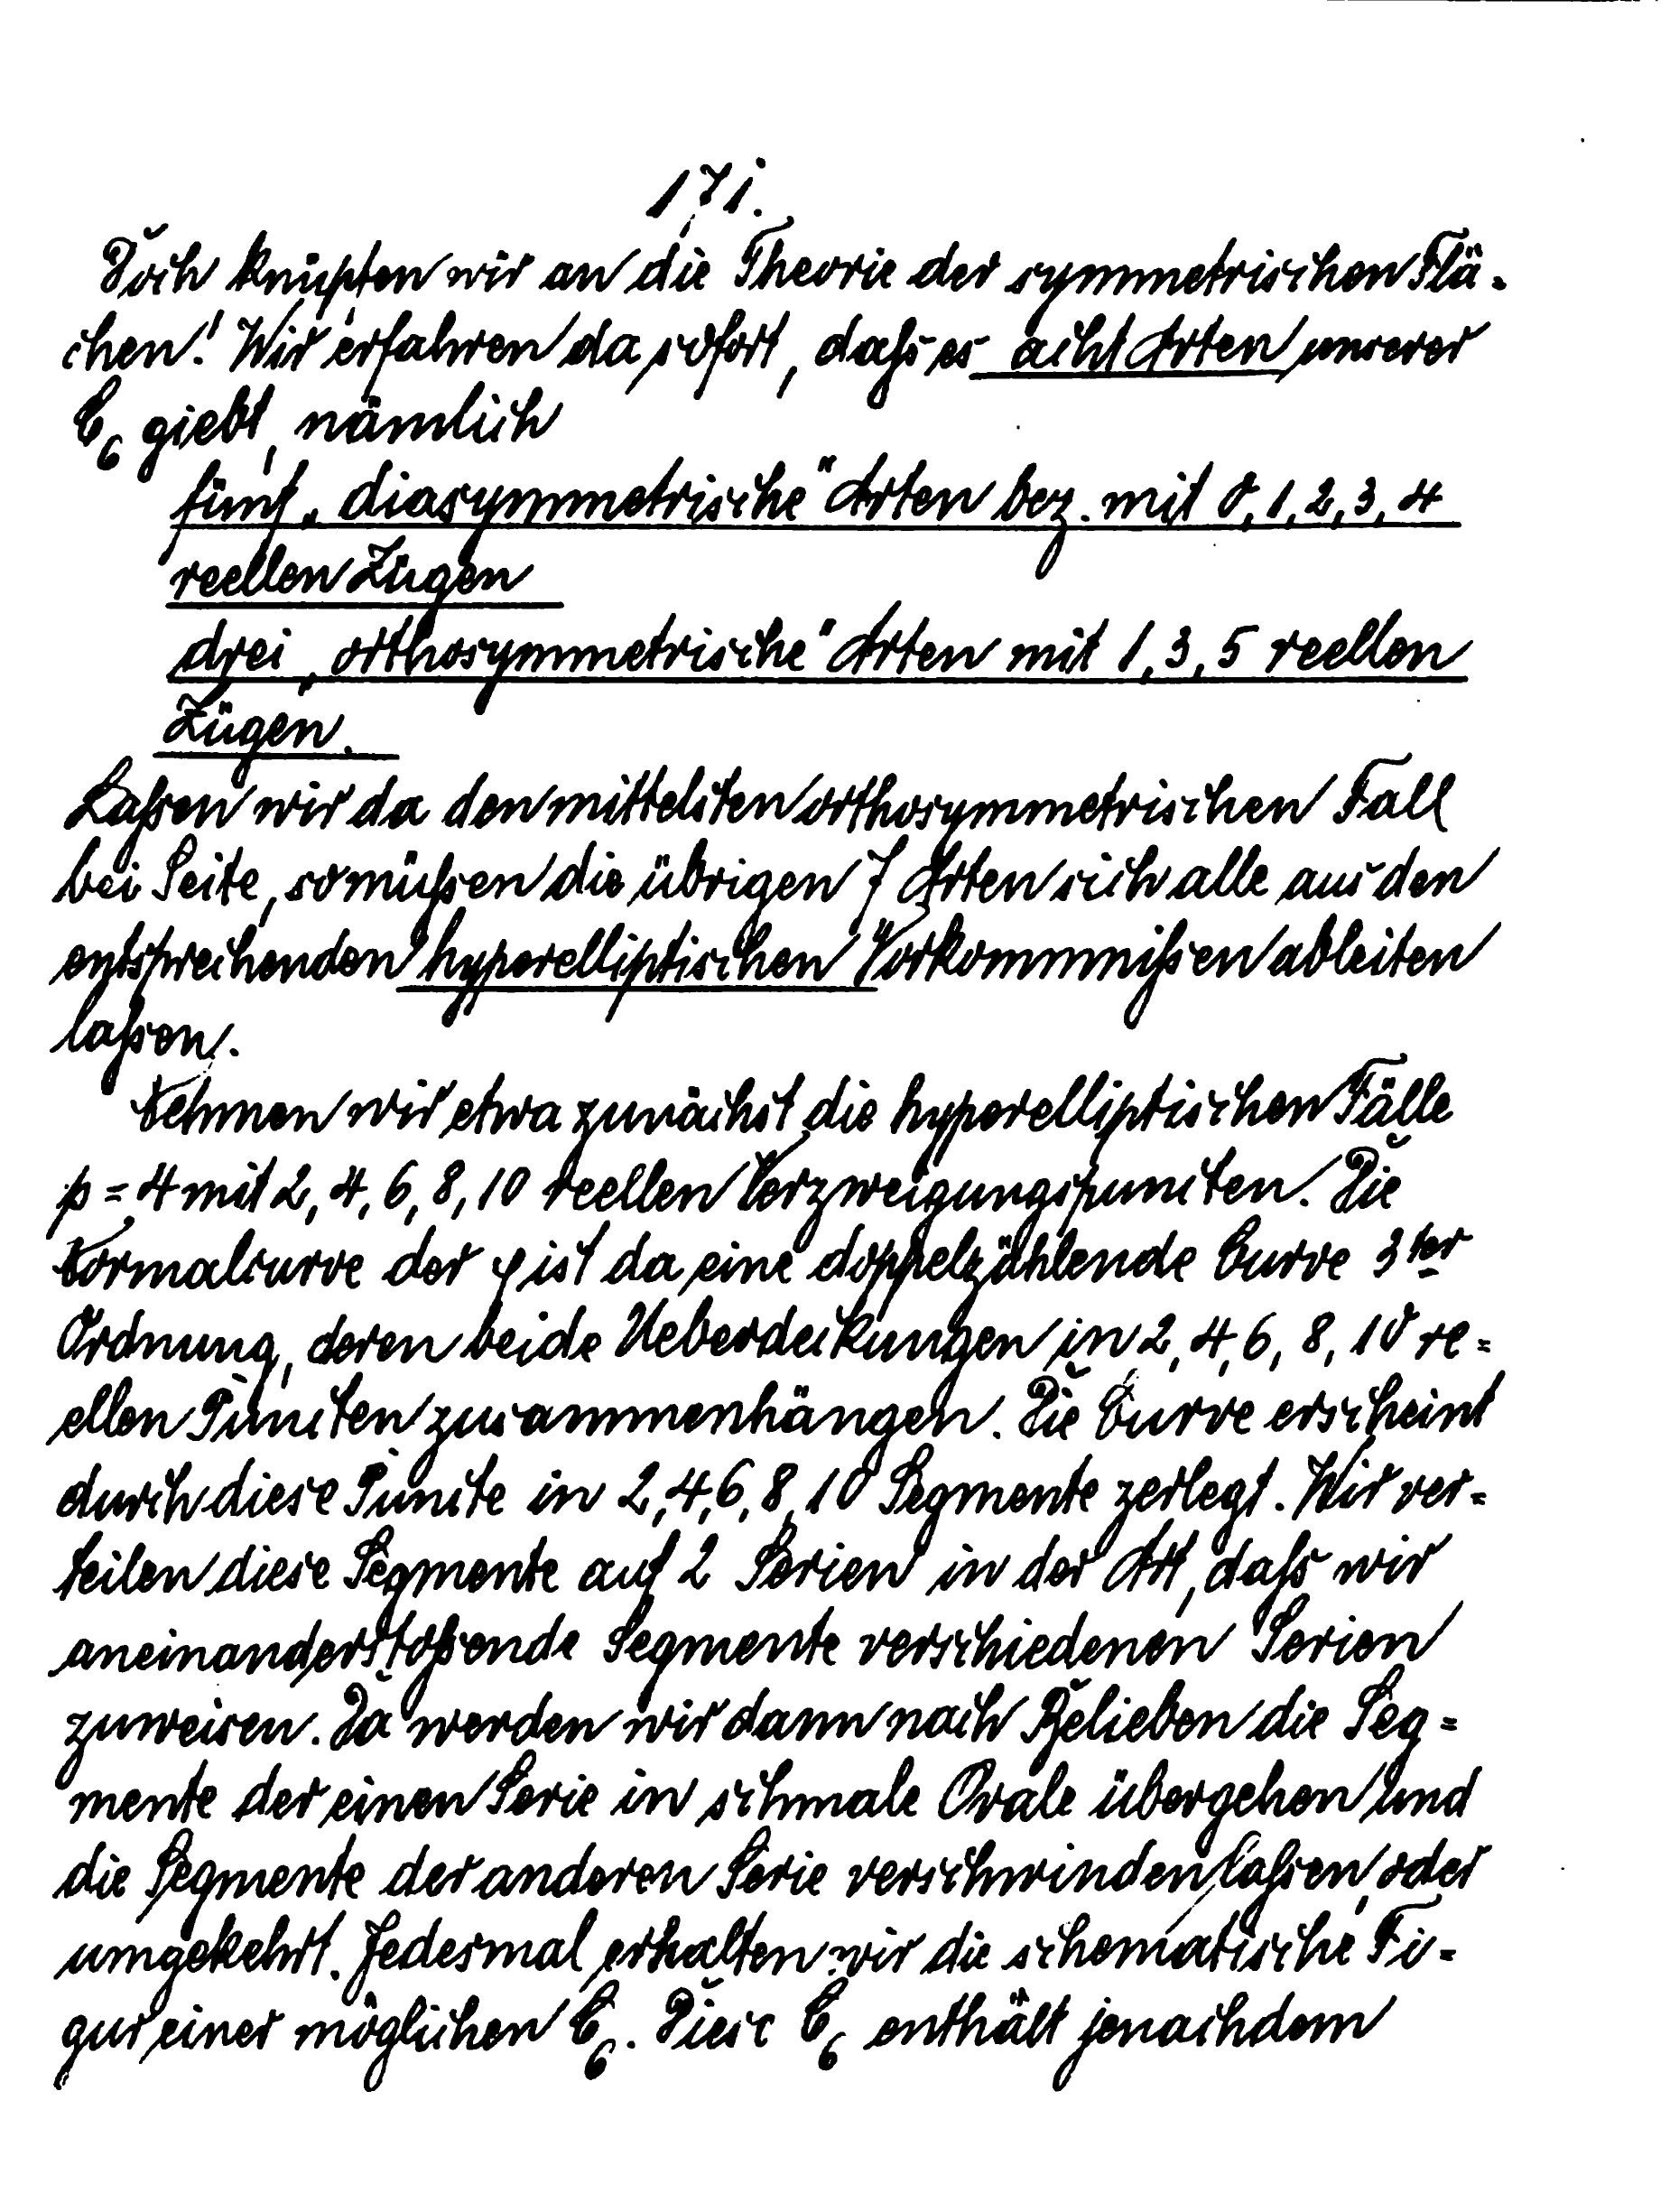 171.
Doch knüpfen wir an die Theorie der symmetrischen Flä-
chen! Wir erfahren da sofort, daſs es acht Arten unserer
C₆ giebt, nämlich
fünf „diasymmetrische" Arten bez. mit 0, 1, 2, 3, 4
reellen Zügen
drei „orthosymmetrische" Arten mit 1, 3, 5 reellen
Zügen.
Laſsen wir da den mittelsten orthosymmetrischen Fall
bei Seite, so müſsen die übrigen 7 Arten sich alle aus den
entsprechenden hyperelliptischen Vorkommniſsen ableiten
laſsen.
Nehmen wir etwa zunächst die hyperelliptischen Fälle
p = 4 mit 2, 4, 6, 8, 10 reellen Verzweigungspuncten. Die
Normalcurve der φ ist da eine doppelzählende Curve 3ter
Ordnung, deren beide Ueberdeckungen in 2, 4, 6, 8, 10 re-
ellen Puncten zusammenhängen. Die Curve erscheint
durch diese Puncte in 2, 4, 6, 8, 10 Segmente zerlegt. Wir ver-
teilen diese Segmente auf 2 Serien in der Art, daſs wir
aneinanderstoſsende Segmente verschiedenen Serien
zuweisen. Da werden wir dann nach Belieben die Seg-
mente der einen Serie in schmale Ovale übergehen und
die Segmente der anderen Serie verschwinden laſsen, oder
umgekehrt. Jedesmal erhalten wir die schematische Fi-
gur einer möglichen C₆. Diese C₆ enthält jenachdem